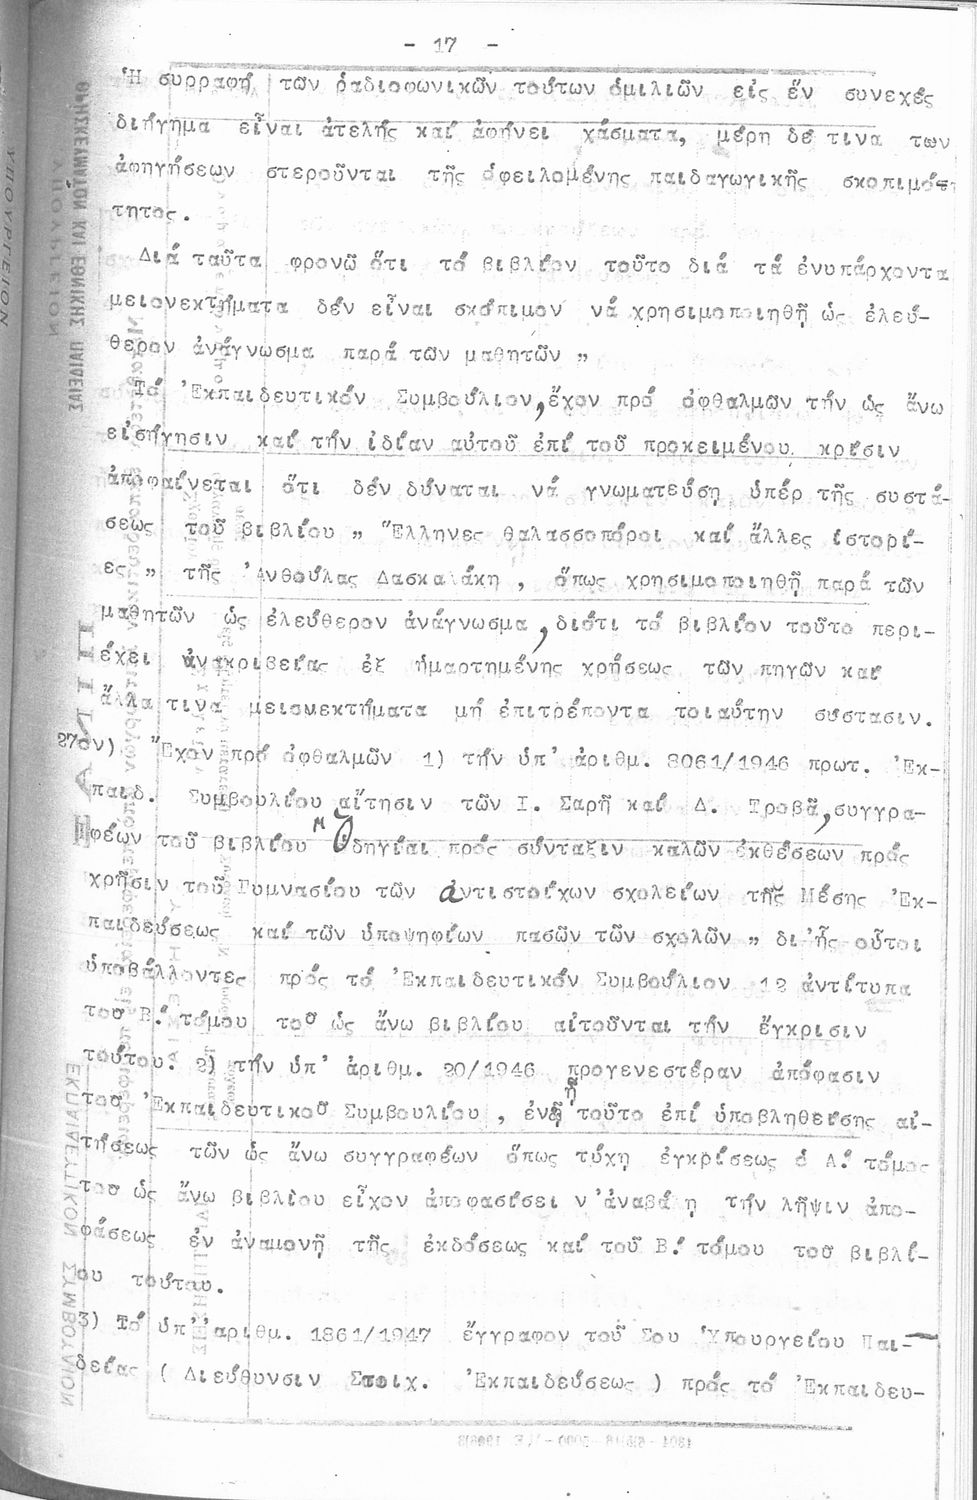 - 17 -
Ἡ συρραφή τῶν ραδιοφωνικῶν τούτων ὁμιλιῶν εἰς ἕν συνεχές
διήγημα εἶναι ἀτελής καί ἀφήνει χάσματα, μέρη δέ τινα των
ἀφηγήσεων στεροῦνται τῆς ὀφειλομένης παιδαγωγικῆς σκοπιμό-
τητος.
Διά ταῦτα φρονῶ ὅτι τό βιβλίον τοῦτο διά τά ἐνυπάρχοντα
μειονεκτήματα δέν εἶναι σκόπιμον νά χρησιμοποιηθῇ ὡς ἐλεύ-
θερον ἀνάγνωσμα παρά τῶν μαθητῶν "
Τό Ἐκπαιδευτικόν Συμβούλιον, ἔχον πρό ὀφθαλμῶν τήν ὡς ἄνω
εἰσήγησιν καί τήν ἰδίαν αὐτοῦ ἐπί τοῦ προκειμένου κρίσιν
ἀποφαίνεται ὅτι δέν δύναται νά γνωματεύσῃ ὑπέρ τῆς συστά-
σεως τοῦ βιβλίου " Ἕλληνες θαλασσοπόροι καί ἄλλες ἱστορί-
ες " τῆς Ἀνθούλας Δασκαλάκη , ὅπως χρησιμοποιηθῇ παρά τῶν
μαθητῶν ὡς ἐλεύθερον ἀνάγνωσμα, διότι τό βιβλίον τοῦτο περι-
έχει ἀνακριβείας ἐξ ἡμαρτημένης χρήσεως τῶν πηγῶν καί
ἄλλα τινα μειονεκτήματα μή ἐπιτρέποντα τοιαύτην σύστασιν.
27ον) Ἔχον πρό ὀφθαλμῶν 1) τήν ὑπ' ἀριθμ. 8061/1946 πρωτ. Ἐκ-
παιδ. Συμβουλίου αἴτησιν τῶν Ι. Σαρῆ καί Δ. Τροβᾶ, συγγρα-
φέων τοῦ βιβλίου " Ὁδηγίαι πρός σύνταξιν καλῶν ἐκθέσεων πρός
χρῆσιν τοῦ Γυμνασίου τῶν ἀντιστοίχων σχολείων τῆς Μέσης Ἐκ-
παιδεύσεως καί τῶν ὑποψηφίων πασῶν τῶν σχολῶν " δι' ἧς οὗτοι
ὑποβάλλοντες πρός τό Ἐκπαιδευτικόν Συμβούλιον 12 ἀντίτυπα
τοῦ Β.' τόμου τοῦ ὡς ἄνω βιβλίου αἰτοῦνται τήν ἔγκρισιν
τούτου. 2) τήν ὑπ' ἀριθμ. 20/1946 προγενεστέραν ἀπόφασιν
τοῦ Ἐκπαιδευτικοῦ Συμβουλίου , ἐν ᾗ τοῦτο ἐπί ὑποβληθείσης αἰ-
τήσεως τῶν ὡς ἄνω συγγραφέων ὅπως τύχῃ ἐγκρίσεως ὁ Α.' τόμος
τοῦ ὡς ἄνω βιβλίου εἶχον ἀποφασίσει ν' ἀναβά η τήν λῆψιν ἀπο-
φάσεως ἐν ἀναμονῇ τῆς ἐκδόσεως καί τοῦ Β.' τόμου τοῦ βιβλί-
ου τούτου.
3) Τό ὑπ' ἀριθμ. 1861/1947 ἔγγραφον τοῦ Σου Ὑπουργείου Παι-
δείας ( Διεύθυνσιν Στοιχ. Ἐκπαιδεύσεως ) πρός τό Ἐκπαιδευ-